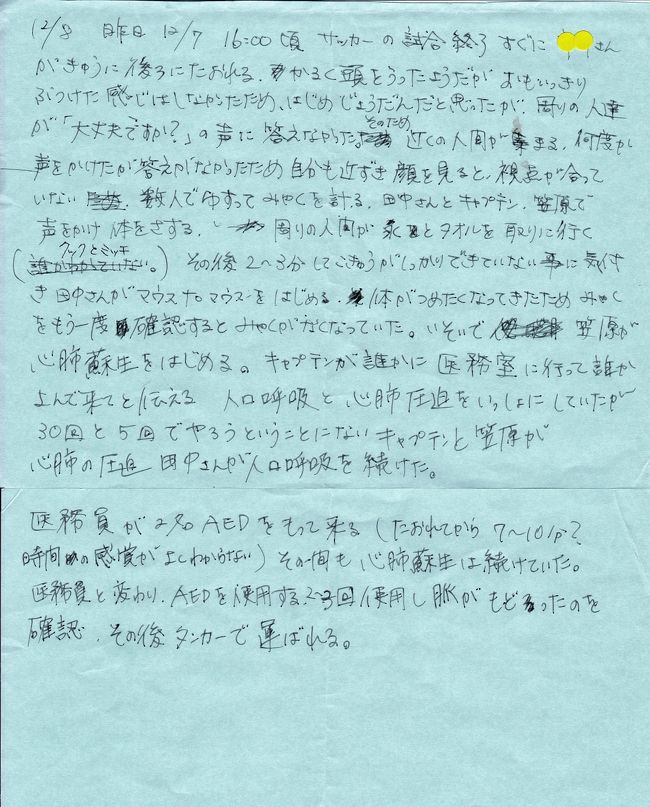 12/8 昨日 12/7 16:00頃 サッカーの試合終了 すぐに さん
がきゅうに後ろにたおれる、かるく頭をうったようだがおもいっきり
ぶつけた感じはしなかたため、はじめじょうだんだと思ったが、周りの人達
が「大丈夫ですか?」の声に答えなかった。そのため 近くの人間が集まる、何度か
声をかけたが答えがなかったため自分も近ずき顔を見ると、視点が合って
いない、数人でゆすってみゃくを計る、田中さんとキャプテン、笠原で
声をかけ体をさする、周りの人間が氷とタオルを取りに行く
(クックとミッキ
誰かわかていない。) その後2〜3分してこきゅうがしっかりできていない事に気付
き田中さんがマウスtoマウスをはじめる、体がつめたくなってきたため みゃく
をもう一度確認するとみゃくがなくなっていた。いそいで 笠原が
心肺蘇生をはじめる。キャプテンが誰かに医務室に行って誰か
よんで来てと伝える 人口呼吸と心肺圧迫をいっしょにしていたが
30回と5回でやろうということにない キャプテンと笠原が
心肺の圧迫 田中さんが人口呼吸を続けた。
医務員が2名AEDをもって来る (たおれてから 7〜10分?
時間の感覚がよくわからない) その間も心肺蘇生は続けていた。
医務員と変わり、AEDを使用する、2〜3回使用し脈がもどったのを
確認、その後タンカーで運ばれる。